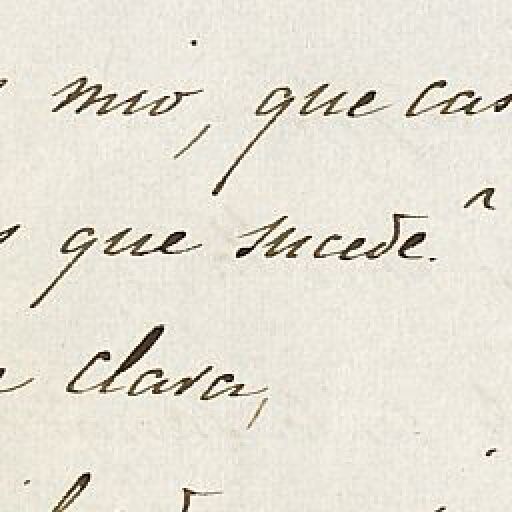 mio, que cas
que sucede?
clara,